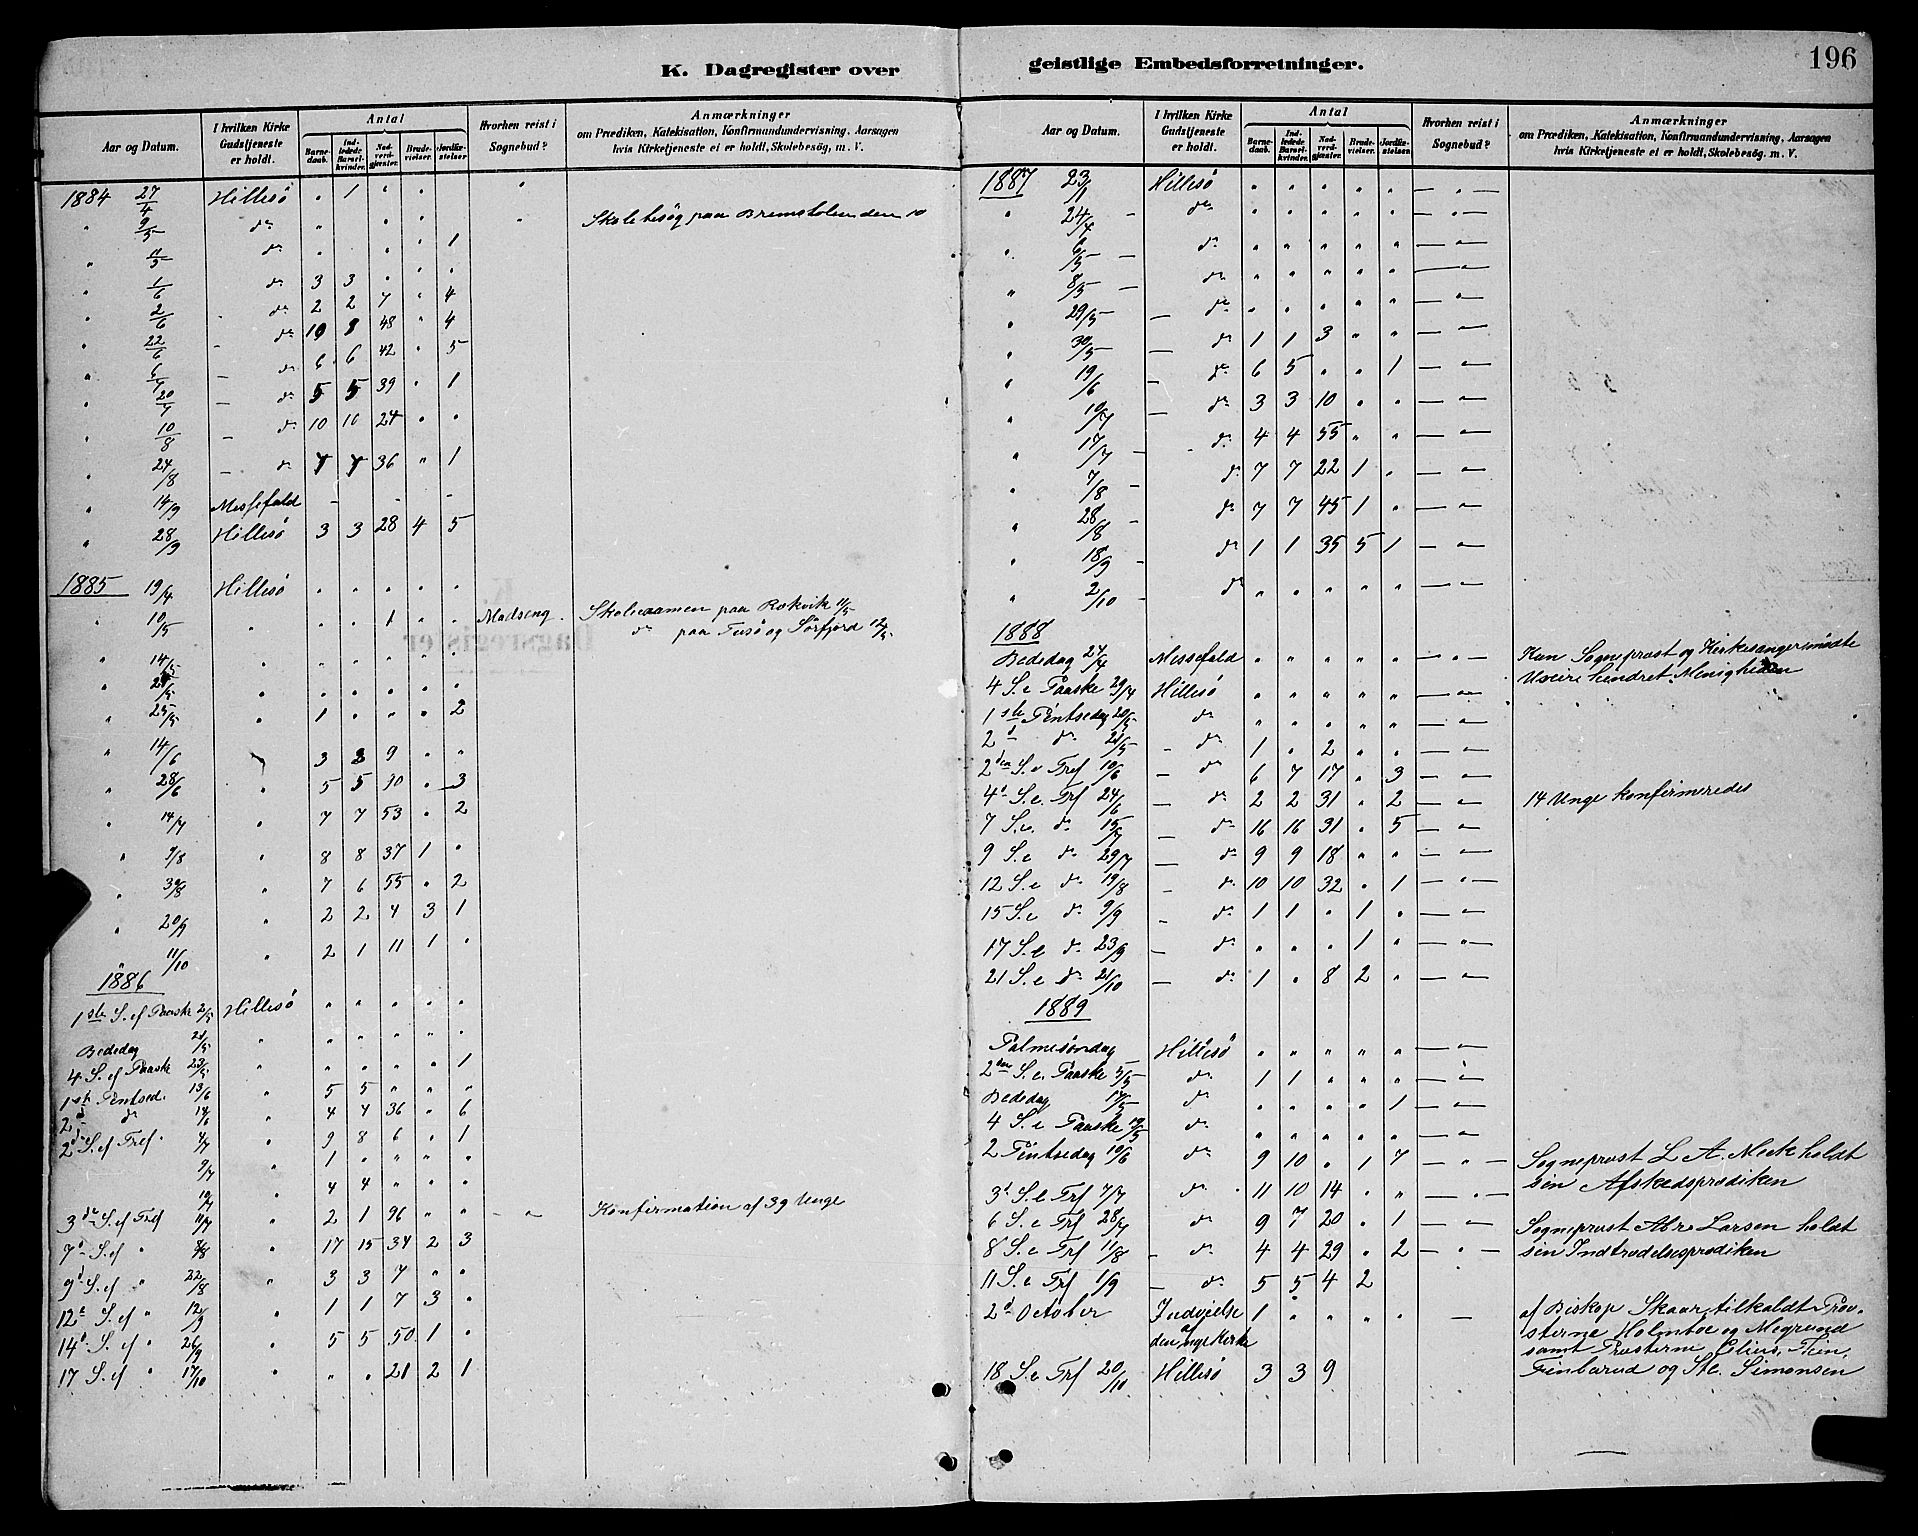 196
K. Dagregister over geistlige Embedsforretninger.
Aar og Datum. I hvilken Kirke Gudstjeneste er holdt. Antal Barnedaab. Indledede Barselkvinder. Nadverdgjæster. Brudevielser. Jordfæstelser Hvorhen reist i Sognebud? Anmærkninger om Prædiken, Katekisation, Konfirmandundervisning, Aarsagen hvis Kirketjeneste ei er holdt, Skolebesög, m. V.
1884 27/4 Hillesö " 1 " "
" 9/5 do " " " " Skolebesøg paa Bremstolen den 10
" 11/5 do " " " 1
" 1/6 do 3 3 " " "
" 2/6 do 2 2 7 " 4
" 22/6 do 10 8 48 " 4
" 6/7 do 6 6 42 " 5
" 20/7 do 5 5 39 " 1
" 10/8 do 10 10 24 " "
" 24/8 do 7 7 36 " 1
" 14/9 Messefald - - -
" 28/9 Hillesö 3 3 28 4 5
1885 19/4 Hillesö " " " " "
" 10/5 " " " 1 " " Madseng. Skoleexamen paa Rekvik 11/5
do paa Tusö og Sörfjord 12/5
" 14/5 " " " " " "
" 24/5 " " " " " "
" 25/5 " 1 " " " 2
" 14/6 3 3 9 " "
" 28/6 " 5 5 10 " 3
" 14/7 " 7 7 53 " 2
" 9/8 " 8 8 37 1 "
" 30/8 " 7 6 55 " 2
" 20/9 " 2 2 4 3 1
" 11/10 " 2 1 11 1 "
1886
1ste S. ef Paaske 2/5 Hillesö " " " " "
Bededag 21/5 " " " " " "
4. S. ef Paaske 23/5 " " " " " 1
1ste Pintsed. 13/6 " 5 5 " " "
2d do 14/6 " 4 4 36 " 6
2de S. ef Tref. 4/7 " 9 8 6 " 1
9/7 " 1 " " " "
10/7 " 4 4 " " "
3de S. ef Tref 11/7 " 2 1 96 " " - " Konfirmation af 39 Unge
7d S. ef " 8/8 " 17 15 34 2 3
9d S. ef " 22/8 " 3 3 7 " "
12te S. ef " 12/9 " 1 1 7 3 "
14d S. ef " 26/9 " 5 5 50 1 "
17 S. ef " 17/10 " " " 21 2 1
Aar og Datum. I hvilken Kirke Gudstjeneste er holdt. Antal Barnedaab. Indledede Barselkvinder. Nadverdgjæster. Brudevielser. Jordfæstelser. Hvorhen reist i Sognebud? Anmærkninger om Prædiken, Katekisation, Konfirmandundervisning, Aarsagen hvis Kirketjeneste ei er holdt, Skolebesög. m. V.
1887 23/1 Hillesö " " " " " — " —
" 24/4 do " " " " " — " —
" 6/5 do " " " " " — " —
" 8/5 do " " " " " — " —
" 29/5 do " " " " " — " —
" 30/5 do 1 1 3 " " — " —
" 19/6 do 6 5 " " 1 — " —
" 10/7 do 3 3 10 " " — " —
" 17/7 do 4 4 55 " " — " —
" 7/8 do 7 7 22 1 " — " —
" 28/8 do 7 7 45 1 " — " —
" 18/9 do 1 1 35 5 1 — " —
" 2/10 do " " " " " — " —
1888
Bededag 27/4 Messefald " " " " " — " — Kun Sogneprest og Kirkesanger mödte
4 S. e Paaske 29/4 Hillesö " " " " " — " — Uveir hindret Menigheden
1ste Pintsedag 20/5 do " " " " " — " —
2d do 21/5 do 1 " 2 " " — " —
2den S. e Tref 10/6 do 6 7 17 " 3 — " —
4d S. e. Trf 24/6 do 2 2 31 " 2 — " — 14 Unge konfirmeredes
7 S. e. do 15/7 do 16 16 31 " 5 — " —
9 S. e do 29/7 do 9 9 18 " " — " —
12 S. e do 19/8 do 10 10 32 " 1 — " —
15 S. e do 9/9 do 1 1 " 1 " — " —
17 S. e do 23/9 do " " " 1 " — " —
21 S. e do 21/10 do 1 " 8 2 " — " —
1889
Palmesöndag Hillesö " " " " " — " —
2den S. e. Paaske 5/5 do 1 1 " " " — " —
Bededag 17/5 do " " " " 1 — " —
4 S. e Paaske 19/5 do " " " " " — " —
2 Pintsedag 10/6 do 9 10 " 1 7 — " — Sogneprest L A. Meek holdt
3d S. e Trf 7/7 do 11 10 14 " " — " — sin Afskedsprædiken
6 S. e Trf 28/7 do 9 7 20 " 1 — " — Sogneprest Abr. Larsen holdt
8 S. e Trf 11/8 do 4 4 29 " 2 — " — sin Indtrædelsesprædiken
11 S. e Trf 1/9 do 5 5 4 2
2d October Indvielse 1 " " " " — af Biskop Skaar, tilkaldt Prov-
af den nye Kirke sterne Holmboe og
samt Presterne
18 S. e Trf 20/10 Hillesö 3 3 9 og Simonsen